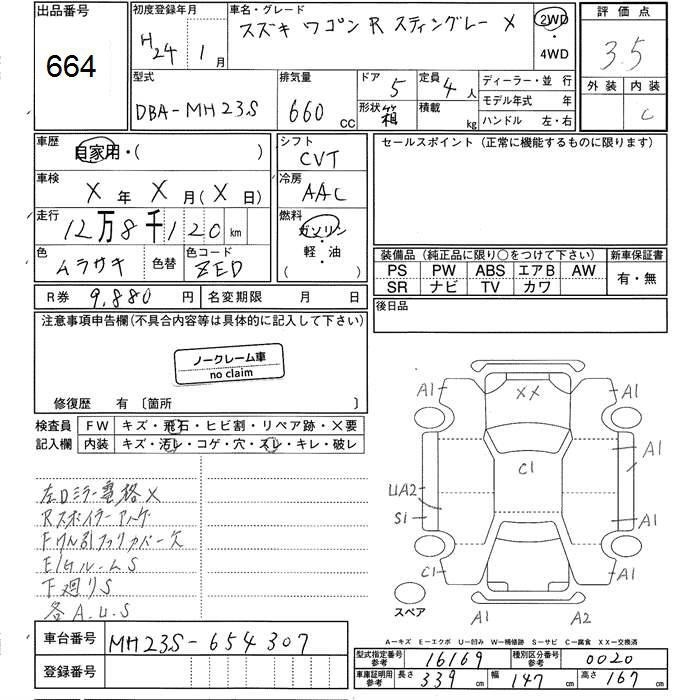 出品番号
664
初度登録年月
H24 1月
車名・グレード
スズキ ワゴンR スティングレー X
2WD
・
4WD
評価点
3.5
外装 内装
C
型式
DBA-MH23S
排気量
660 CC
ドア 5
形状 箱
定員 4人
積載 kg
ディーラー・並行
モデル年式 年
ハンドル 左・右
車歴
自家用・( )
車検
X年 X月(X日)
走行
12万8千120km
色
ムラサキ
色替
色コード
ZED
シフト
CVT
冷房
AAC
燃料
ガソリン
・
軽・油
( )
セールスポイント(正常に機能するものに限ります)
装備品(純正品に限り○をつけて下さい)
PS PW ABS エアB AW
SR ナビ TV カワ
新車保証書
有・無
R券 9,880円
名変期限 月 日
後日品
注意事項申告欄(不具合内容等は具体的に記入して下さい)
ノークレーム車
no claim
修復歴 有 〔箇所 〕
検査員
記入欄
FW キズ・飛石・ヒビ割・リペア跡・×要
内装 キズ・汚レ・コゲ・穴・スレ・キレ・破レ
左Dミラー電格X
Rスポイラー
Fけん引フックカバー欠
E/GルームS
下廻りS
各A.U.S
A1
XX
A1
A1
C1
UA2
S1
A1
C1
A1
スペア
A1
A2
A-キズ E-エクボ U-凹み W-補修跡 S-サビ C-腐食 XX-交換済
車台番号
MH23S-654307
登録番号
型式指定番号
参考
16169
種別区分番号
参考
0020
車庫証明用
参考
長さ 339cm
幅 147cm
高さ 167cm